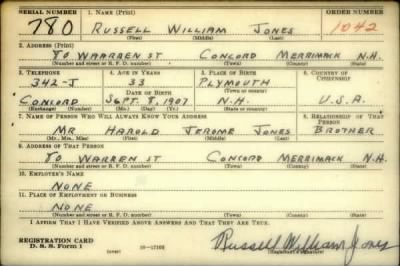 SERIAL NUMBER 1. NAME (Print) ORDER NUMBER
780 RUSSELL WILLIAM JONES 1042
(First) (Middle) (Last)
2. ADDRESS (Print)
80 WAARREN ST CONCORD MERRIMACK N.H.
(Number and street or R. F. D. number) (Town) (County) (State)
3. TELEPHONE 4. AGE IN YEARS 5. PLACE OF BIRTH 6. COUNTRY OF CITIZENSHIP
342-J 33 PLYMOUTH
DATE OF BIRTH (Town or county)
CONCORD SEPT. 8, 1907 N.H. U.S.A.
(Exchange) (No.) (Mo.) (Day) (Yr.) (State or country)
7. NAME OF PERSON WHO WILL ALWAYS KNOW YOUR ADDRESS 8. RELATIONSHIP OF THAT PERSON
MR HAROLD JEROME JONES BROTHER
(Mr., Mrs., Miss) (First) (Middle) (Last)
9. ADDRESS OF THAT PERSON
80 WARREN ST CONCORD MERRIMACK N.H.
(Number and street or R. F. D. number) (Town) (County) (State)
10. EMPLOYER'S NAME
NONE
11. PLACE OF EMPLOYMENT OR BUSINESS
NONE
(Number and street or R. F. D. number) (Town) (County) (State)
I AFFIRM THAT I HAVE VERIFIED ABOVE ANSWERS AND THAT THEY ARE TRUE.
REGISTRATION CARD
D. S. S. Form 1 (over) 16-17105 Russell William Jones
(Registrant's signature)